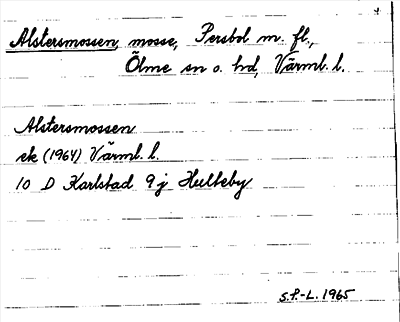 Alstersmossen, mosse, Persbol m. fl.,
Ölme sn o. hd, Värml. l.
Alstersmossen
ek (1964) Värml. l.
10 D Karlstad 9 j Hulteby
S.P.-L. 1965